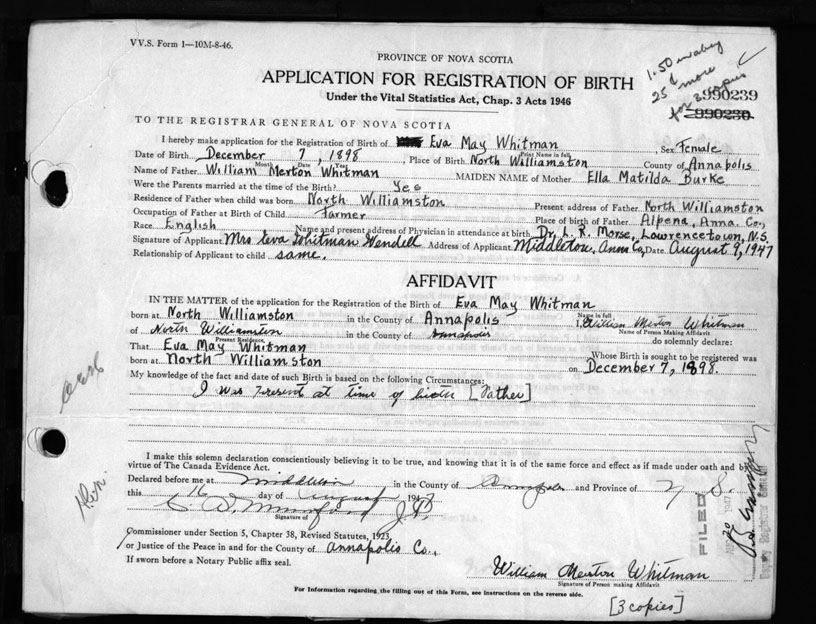 VV.S. Form 1—10M-8-46.
PROVINCE OF NOVA SCOTIA
APPLICATION FOR REGISTRATION OF BIRTH
Under the Vital Statistics Act, Chap. 3 Acts 1946
1.50
25¢ more
for 3 copies
990239
990230
TO THE REGISTRAR GENERAL OF NOVA SCOTIA
I hereby make application for the Registration of Birth of Eva May Whitman, Sex Female
Print Name in full
Date of Birth December 7, 1898, Place of Birth North Williamston County of Annapolis
Month Date Year
Name of Father William Merton Whitman MAIDEN NAME of Mother Ella Matilda Burke
Were the Parents married at the time of the Birth? Yes
Residence of Father when child was born North Williamston Present address of Father North Williamston
Occupation of Father at Birth of Child Farmer Place of birth of Father Alpena, Anna. Co.,
Race English Name and present address of Physician in attendance at birth Dr. L. R. Morse, Lawrencetown, N.S.
Signature of Applicant Mrs Eva Whitman Gendell Address of Applicant Middleton, Anna Co, Date August 9, 1947
Relationship of Applicant to child same.
AFFIDAVIT
IN THE MATTER of the application for the Registration of the Birth of Eva May Whitman
Name in full
born at North Williamston in the County of Annapolis I, William Merton Whitman
Name of Person Making Affidavit
of North Williamston in the County of Annapolis do solemnly declare:
Present Residence,
That Eva May Whitman Whose Birth is sought to be registered was
born at North Williamston on December 7, 1898.
My knowledge of the fact and date of such Birth is based on the following Circumstances:
I was present at time of birth [Father]
I make this solemn declaration conscientiously believing it to be true, and knowing that it is of the same force and effect as if made under oath and by
virtue of The Canada Evidence Act.
Declared before me at Middleton in the County of Annapolis and Province of N. S.
this 16 day of August 1947
J.P.
Signature of
Commissioner under Section 5, Chapter 38, Revised Statutes, 1923,
or Justice of the Peace in and for the County of Annapolis Co.,
If sworn before a Notary Public affix seal.
William Merton Whitman
Signature of Person making Affidavit
For Information regarding the filling out of this Form, see instructions on the reverse side.
[3 copies]
FILED
AUG 20 1947